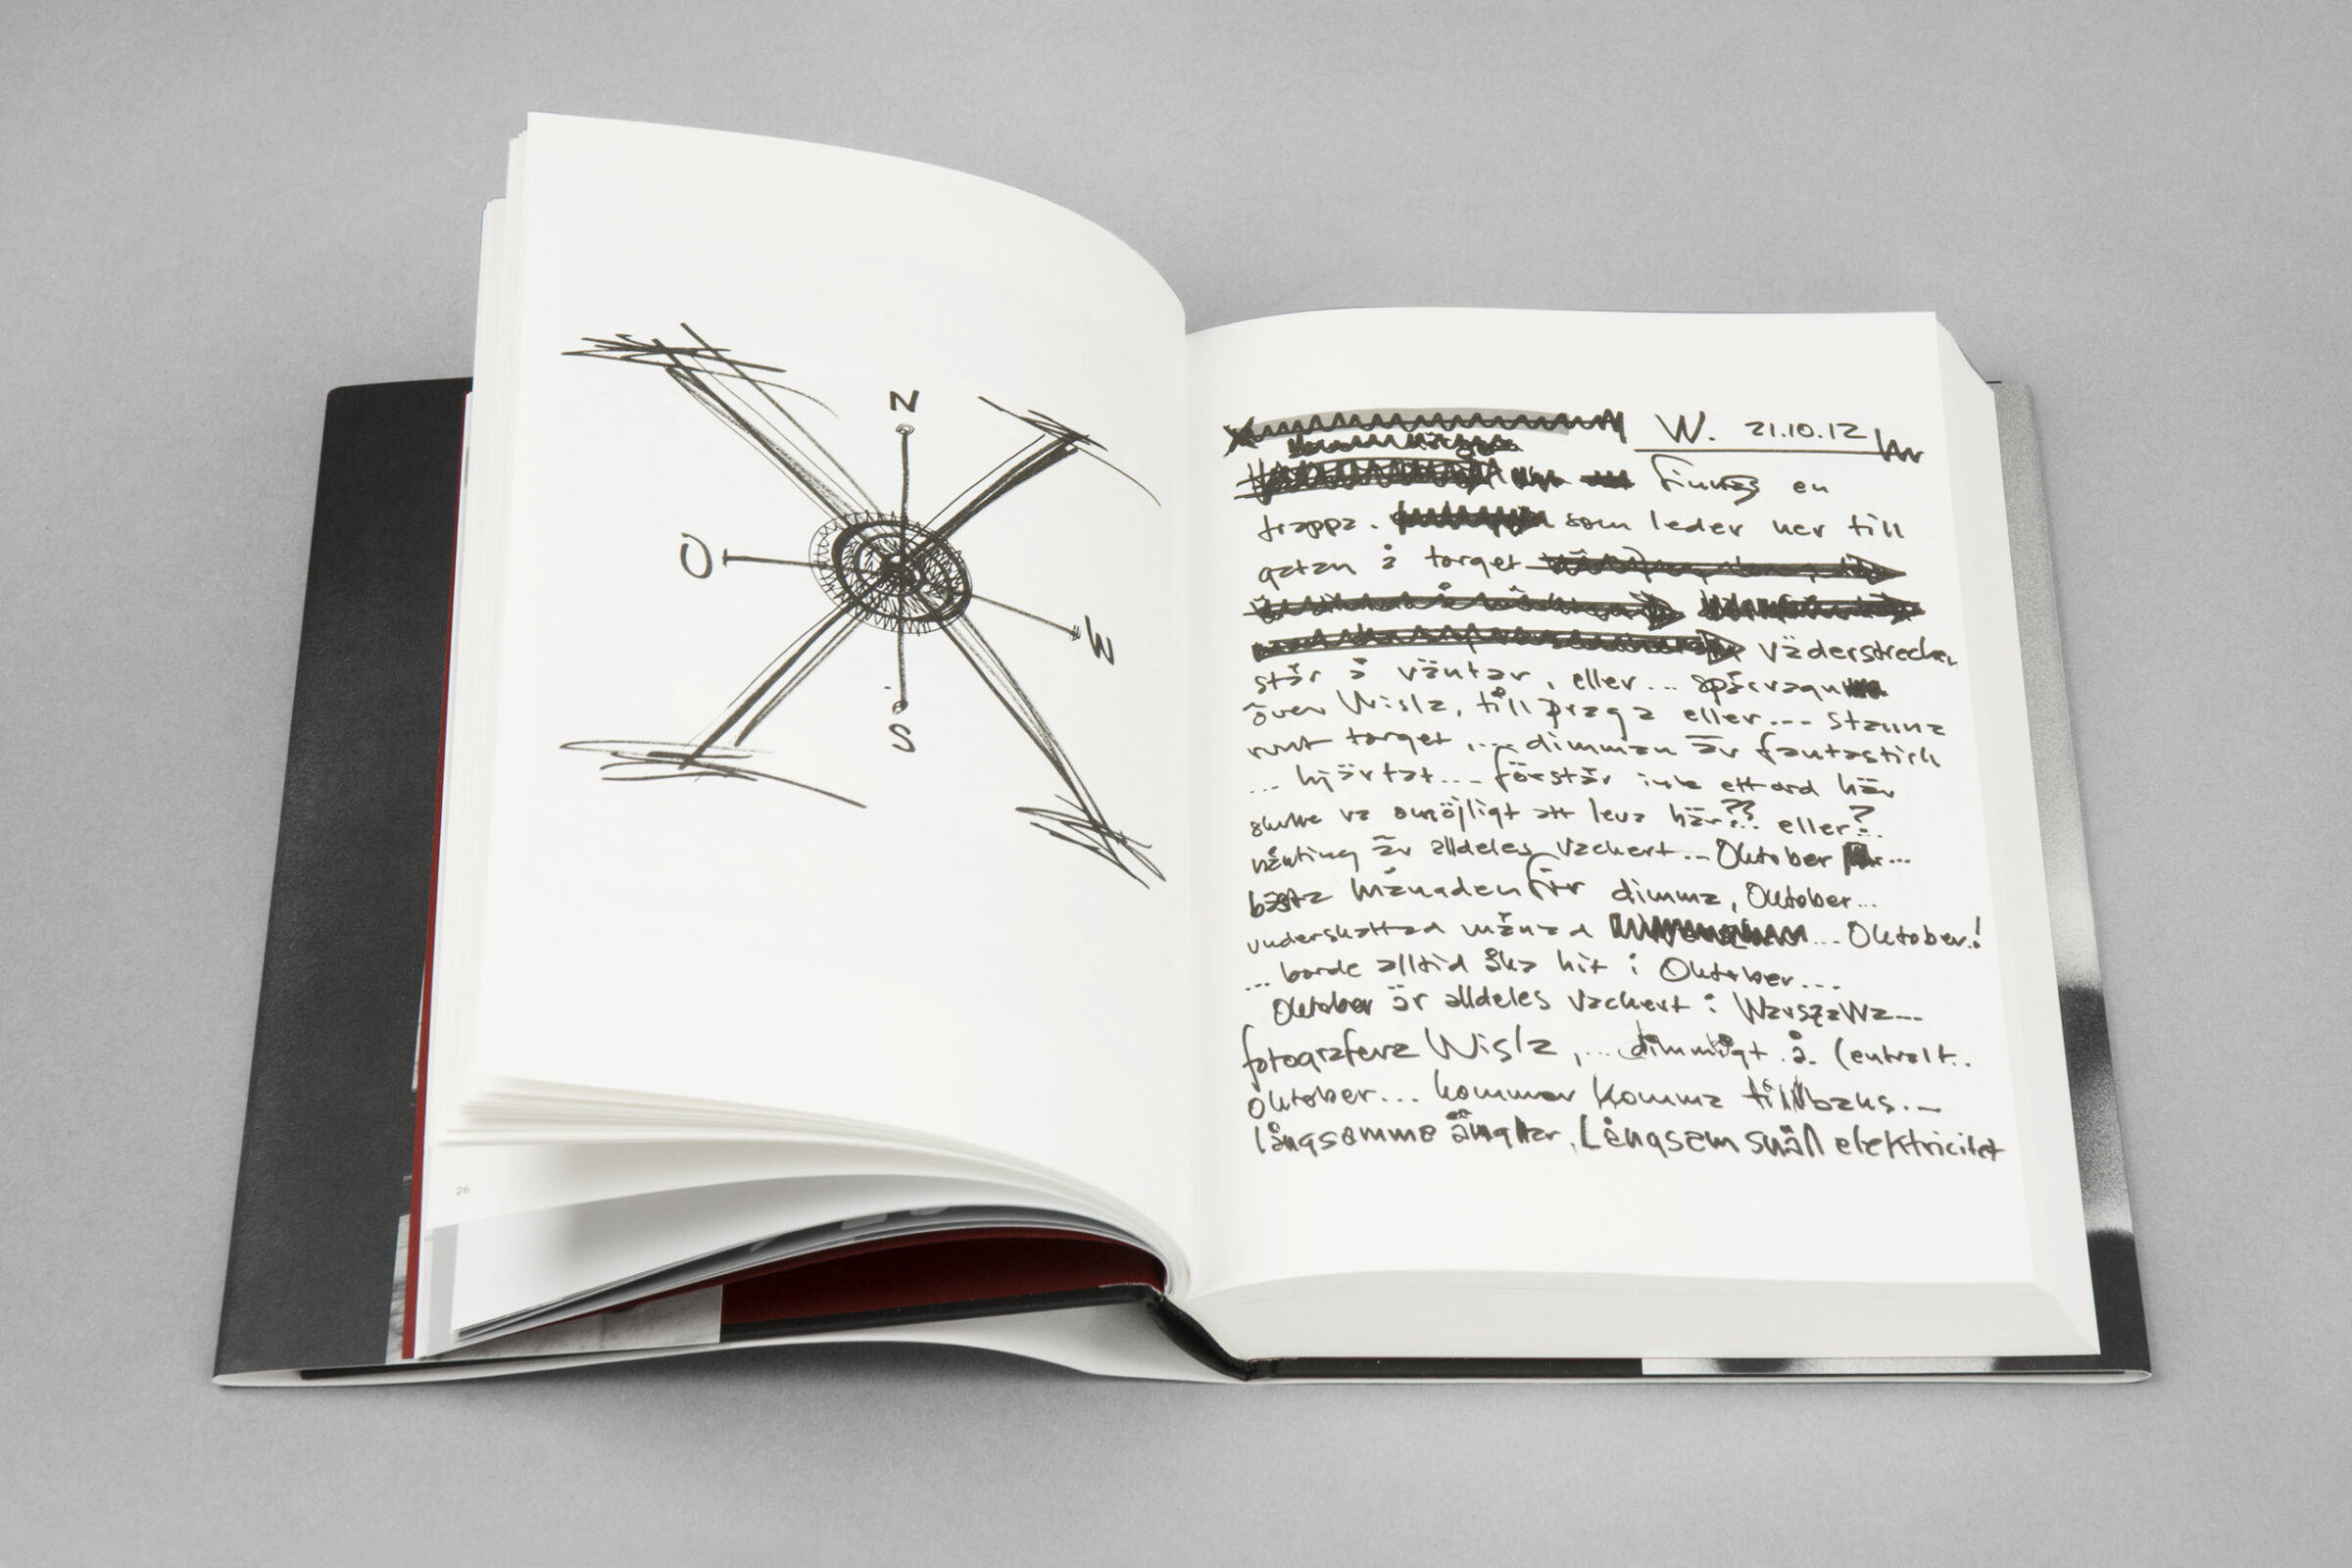 N
O
W
S
26
W. 21.10.12
finns en
trappa. som leder ner till
gatan å torget
väderstrecken
står å väntar, eller... spårvagn
över Wisla, till praga eller... stanna
runt torget ... dimman är fantastisk
... hjärtat... förstår inte ett ord här
skulle va omöjligt att leva här?? eller?..
nånting är alldeles vackert... Oktober ...
bästa månaden för dimma, Oktober...
underskattad månad ... Oktober!
... borde alltid åka hit i Oktober...
Oktober är alldeles vackert i WarszaWa...
fotografera Wisla, ... dimmigt å. Centralt..
Oktober... kommer komma tillbaks...
långsamma änglar. Långsam snäll elektricitet